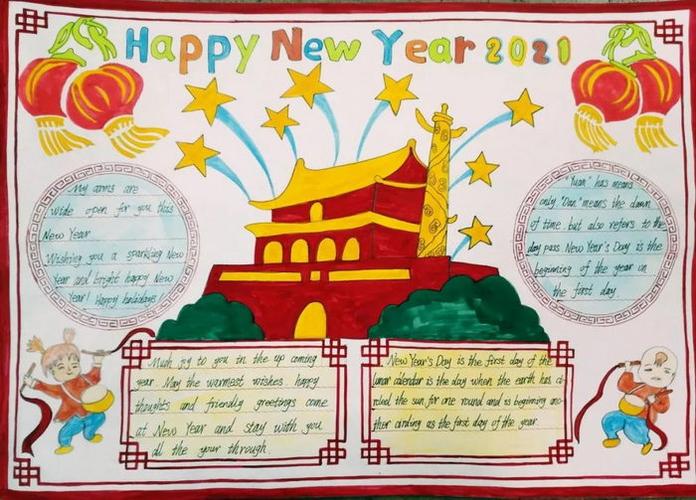 Happy New Year 2021
My arms are
wide open for you this
New Year
Wishing you a sparkling New
Year and bright happy New
Year! Happy holidays
"Yuan" has means
only "Dan" means the dawn
of time but also refers to the
day pass New Year's Day is the
beginning of the year on
the first day.
Much joy to you in the up coming
year. May the warmest wishes, happy
thoughts and friendly greetings come
at New Year and stay with you
all the your through.
New Year's Day is the first day of the
lunar calendar is the day when the earth has ci-
rcled the sun for one round and is beginning ano-
ther circling as the first day of the year.